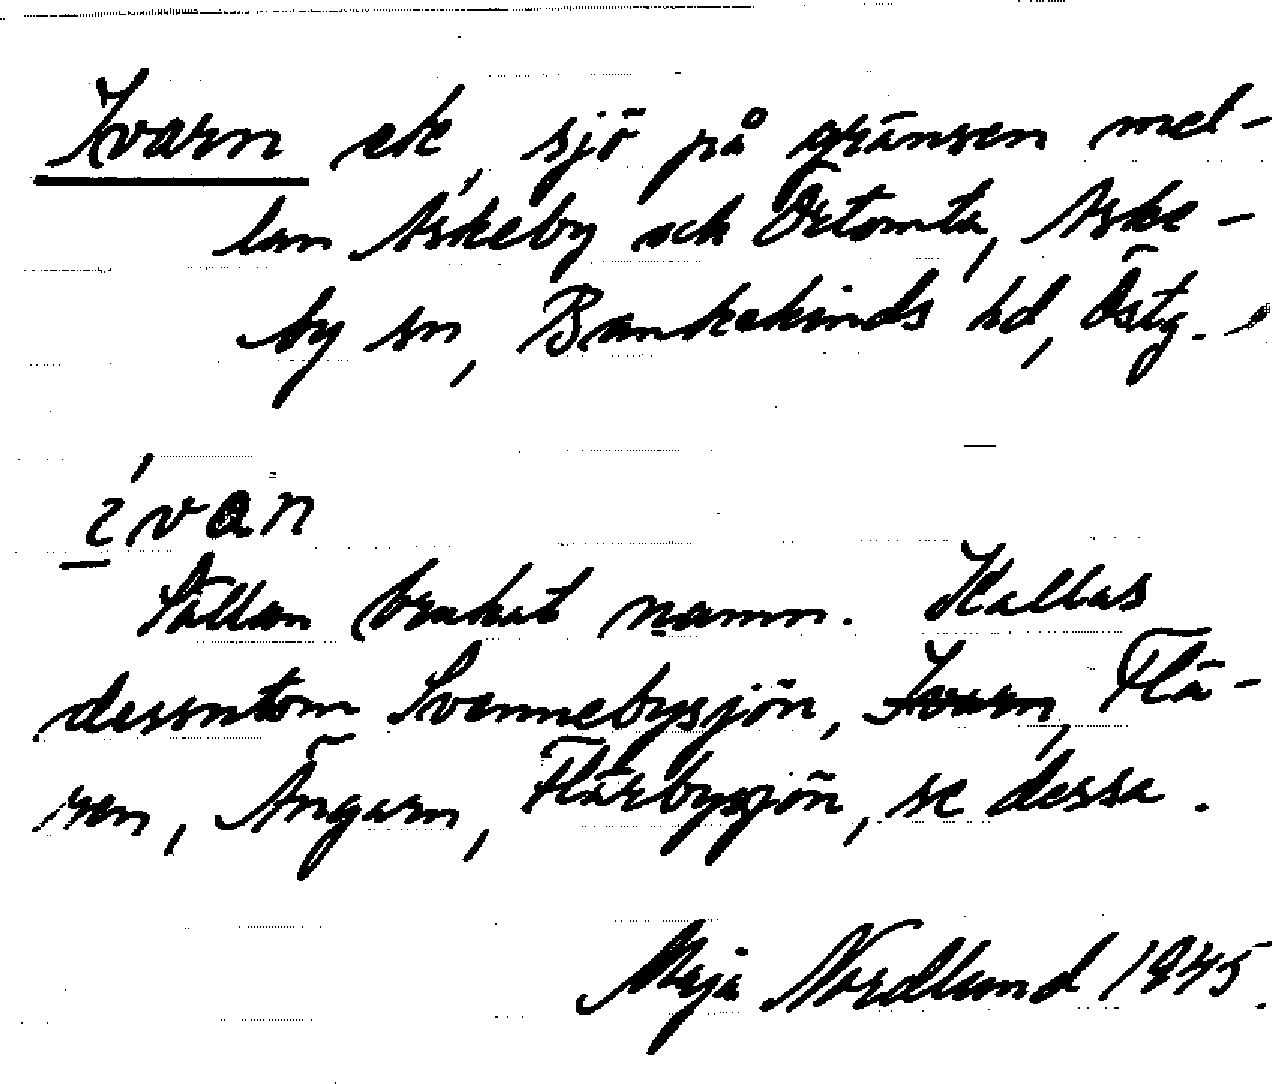 Ivarn ek, sjö på gränsen mel-
lan Askeby och Örtomta, Aske-
by sn, Bankekinds hd, Östg.
ívan
Sällan brukat namn. Kallas
dessutom Svennebysjön, Ivarn, Flä-
ren, Ängarn, Flärbysjön, se dessa.
Maja Nordlund 1945.